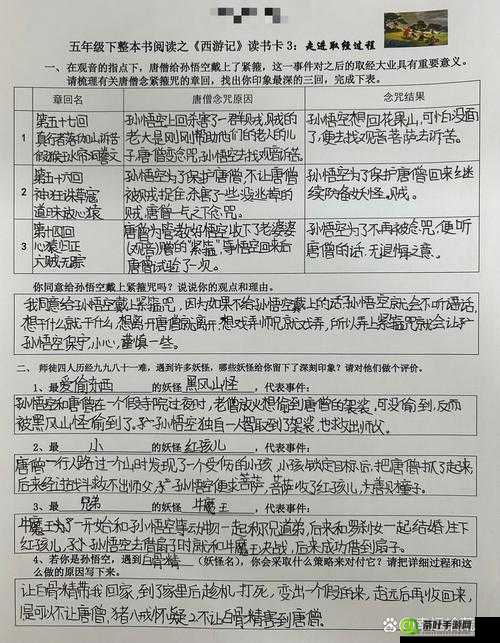 五年级下整本书阅读之《西游记》读书卡3：走进取经过程
一、在观音的指点下，唐僧给孙悟空戴上了紧箍，这一事件对之后的取经大业具有重要意义。
请梳理有关唐僧念紧箍咒的章回，找出你印象最深的三回，完成下表。
章回名 唐僧念咒原因 念咒结果
1
第五十七回
真行者落伽山诉苦
假猴王水帘洞誊文
孙悟空上回杀害了一群贼，贼的
老大是刚刚帮助他们的老人的儿
子，唐僧变念咒，孙悟空去找观音诉苦。
孙悟空想回花果山，可怕没面
了，便去找观音菩萨去诉苦。
2
第五十六回
神狂诛草寇
道昧放心猿
孙悟空为了保护唐僧，不让唐僧
被贼捉住杀害了一些没逃掉的
贼，唐僧一点之下念咒。
孙悟空为了保护唐僧回来继
续防备妖怪。贼。
3
第十四回
心猿归正
六贼无踪
唐僧为管教好悟空收下了老婆婆
(观音)赠的"紧箍"，等悟空回来后
唐僧试验了一次。
孙悟空为了不再被念咒，便听
唐僧的话，无退悔之意。
你同意给孙悟空戴上紧箍咒吗？说说你的观点和理由。
我同意给孙悟空戴上紧箍咒，因为如果不给孙悟空戴上的话孙悟空就会不听话，
想干什么就干什么，想离开唐僧就离开，想戏弄师就戏弄，所以弄上紧箍咒就会让
孙悟空保守，小心，谨慎一些。
二、师徒四人历经九九八十一难，遇到许多妖怪，哪些妖怪给你留下了深刻印象？请对他们做个评价。
1、最爱偷东西的妖怪黑风山怪，代表事件：
孙悟空和唐僧在一个假寺院过夜时，老僧放火想偷到唐僧的袈裟，可没偷到，反而
被黑风山怪偷到了。孙悟空独自一人智取到了袈裟，也救出师父。
2、最小的妖怪红孩儿，代表事件：
唐僧一行人路过一个山时发现了一个受伤的小孩，小孩锁定目标后，把唐僧抓了起来，
后来经过战斗救不出师父，孙悟空便求菩萨，菩萨收了红孩儿，
3、最兄弟的妖怪牛魔王，代表事件：
牛魔王为了一开始和孙悟空等动物一起称兄道弟，后来和罗刹女一起结婚，庄下
红孩儿，孙悟空去借扇子时就和牛魔王决战，后来成功借到扇子。
4、若你是孙悟空，遇到白骨精（妖怪名），你会采取什么策略来对付它？请把详细过程和这
么做的原因写下来。
让白骨精带我回家，到家里后趁机打死，变出一个假回来，走远后再收回来，
是可以不让唐僧，猪八戒怀疑，2.不让白骨精害到唐僧。
茶叶手游网